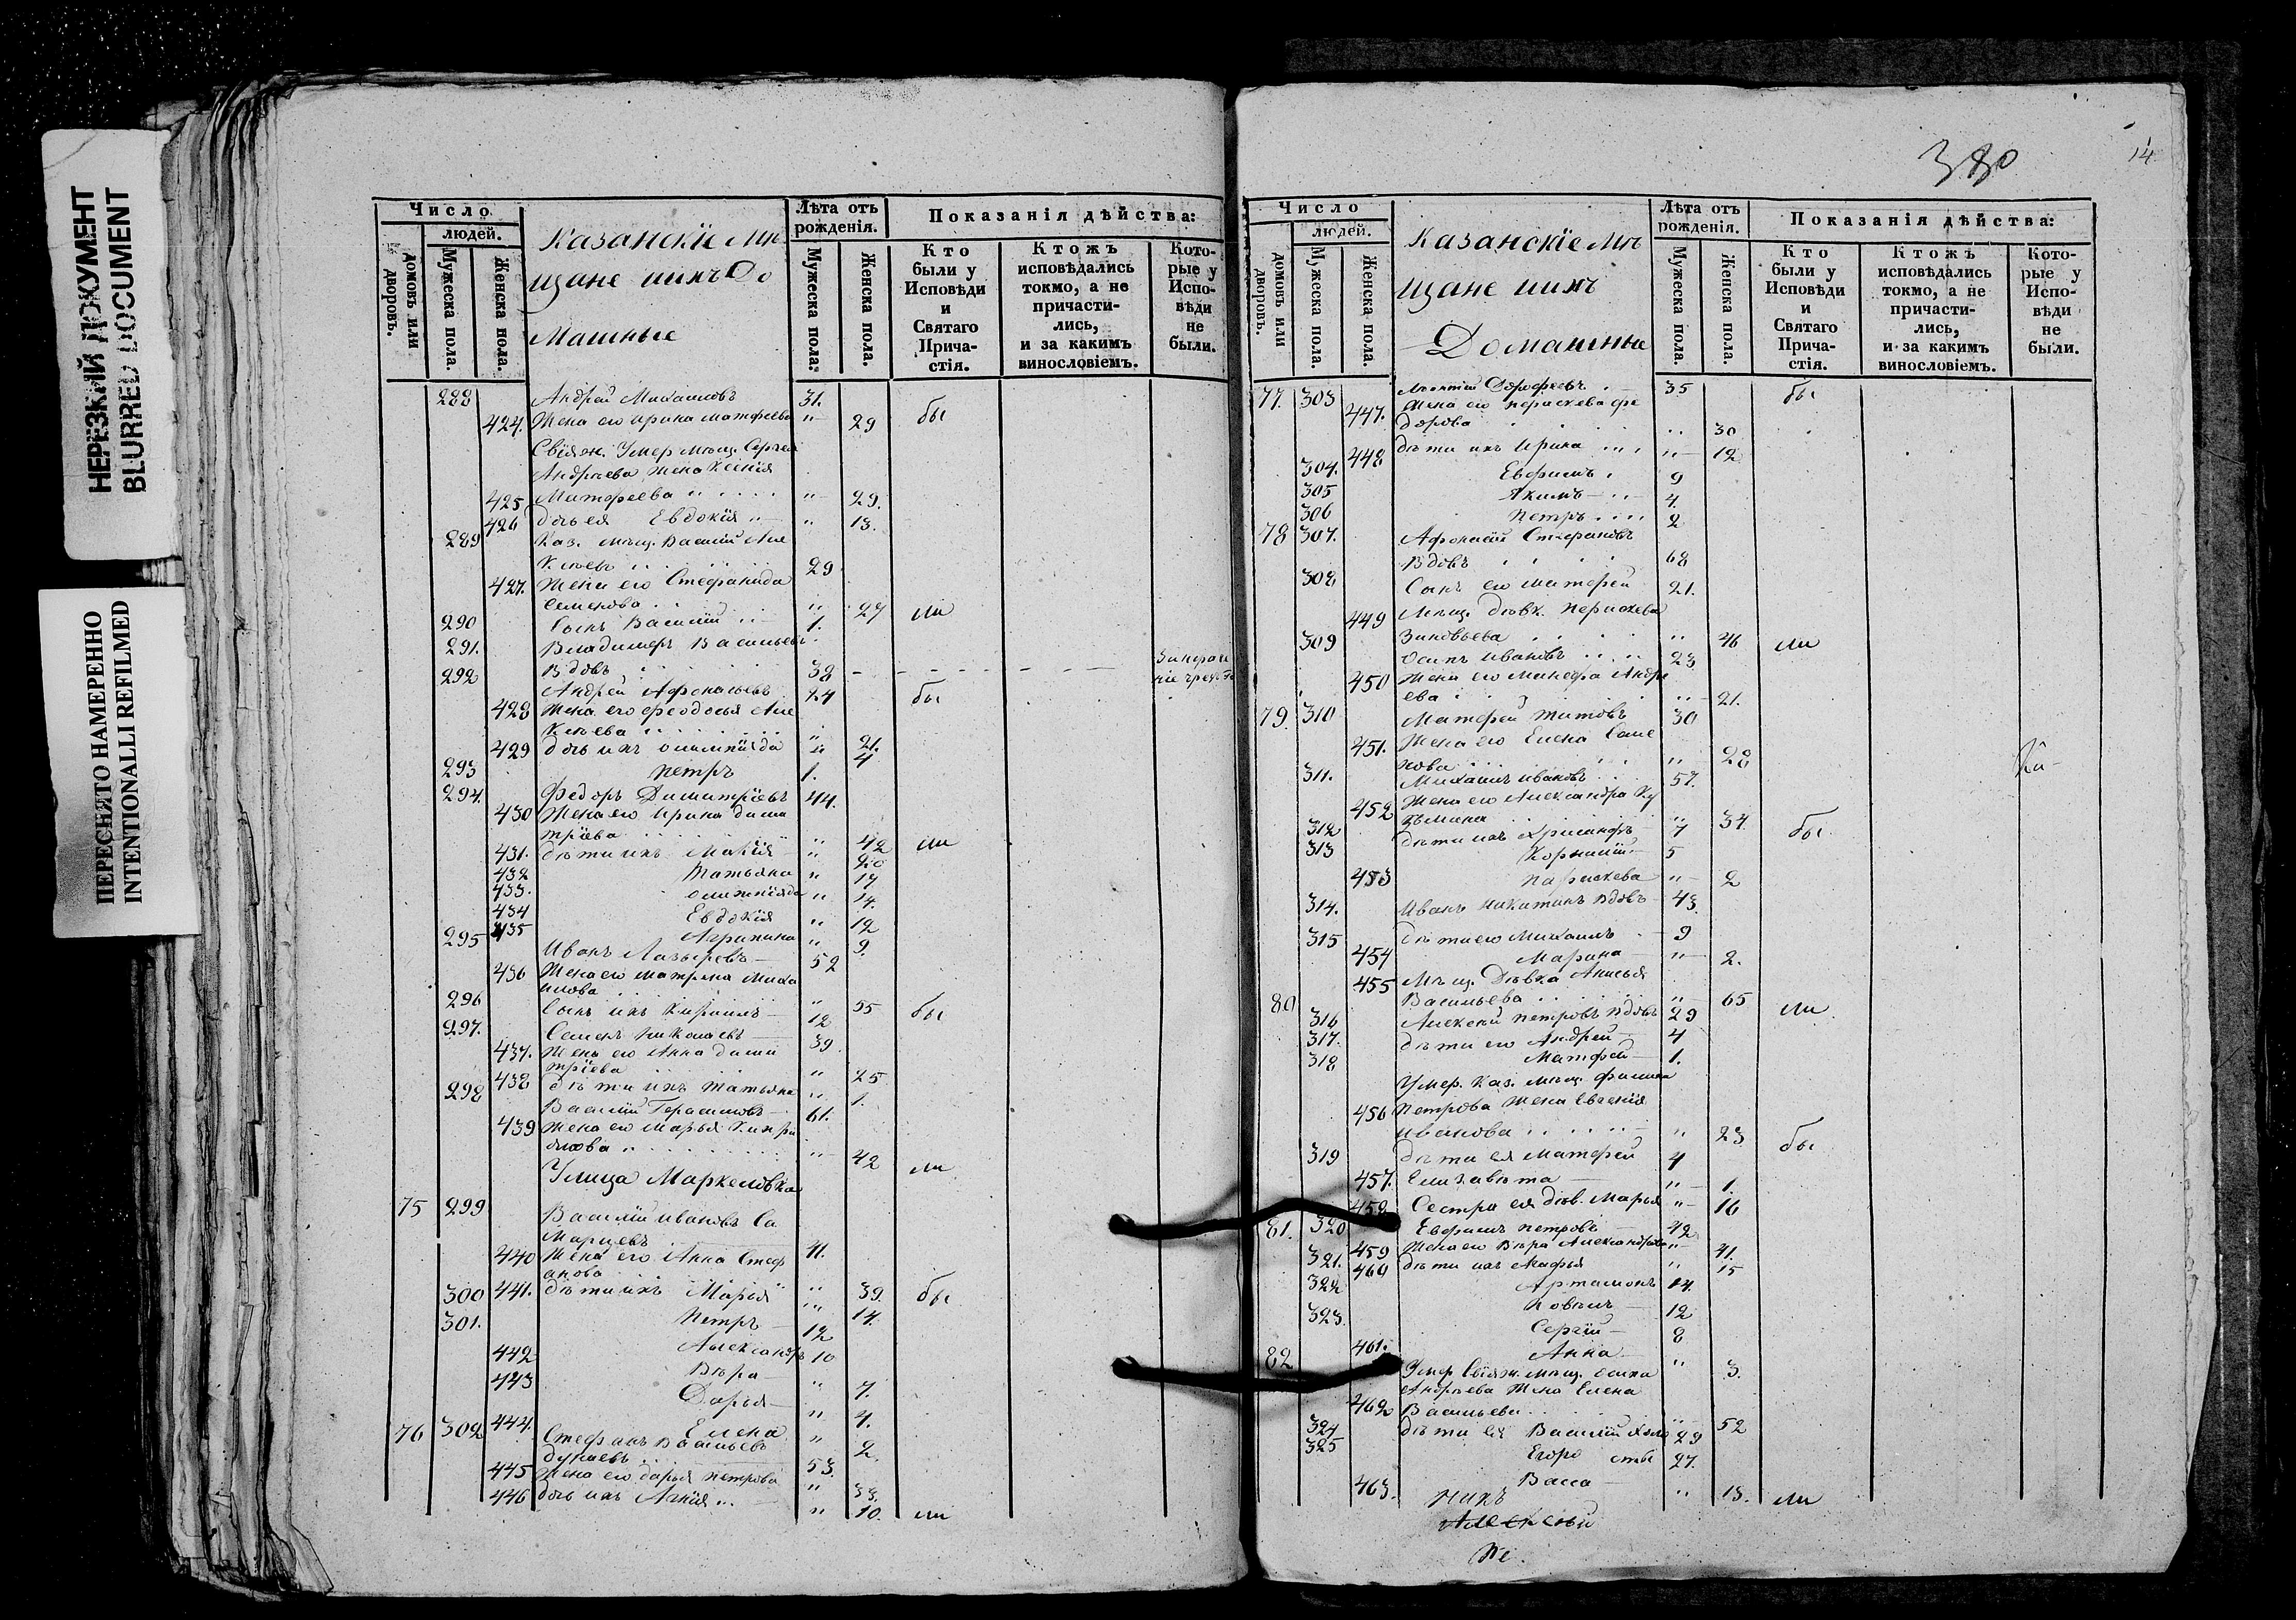 НЕРЕЗКИЙ ДОКУМЕНТ
BLURRED DOCUMENT
ПЕРЕСНЯТО НАМЕРЕННО
INTENTIONALLI REFILMED
Число
людей.
домовъ или дворовъ.
Мужеска пола.
Женска пола.
Казанскіе Мѣ
щане и ихъ До
машные
Лѣта отъ рожденія.
Мужеска пола.
Женска пола.
Показанія дѣйства:
Кто были у Исповѣди и Святаго Прича-стія.
Ктожъ исповѣдались токмо, а не причасти-лись, и за какимъ винословіемъ.
Кото-рые у Испо-вѣди не были.
288 Андрей Михаиловъ 31.
424. Жена его Ирина Матфеева " 29 бы
Свіяж. Умер. мѣщ. Сергея
Андреева жена Ксенія
425 Матфеева " 29.
426 дочь ея Евдокія " 13.
289 Каз. мѣщ. Василій Але
ксѣевъ 29
427. Жена его Стефанида
Семенова " 27 ли
290 Сынъ Василій 1.
291. Владимеръ Васильевъ
292 Вдовъ 38
Андрей Афонасьевъ 24 бы
428 Жена его Феодосья Але
ксѣева " 21.
429 дочь ихъ Олимпіяда " 4
293 Петръ 1.
294. Федоръ Димитріевъ 44.
430 Жена его Ирина Дими
тріева " 42 ли
431. дѣти ихъ Марія " 20
432 Татьяна " 17
433. Олимпіяда " 14.
434 Евдокія " 12
435 Агрипина " 9.
295 Иванъ Лазыревъ 52
436 Жена его Матрена Миха
илова " 55 бы
296 Сынъ ихъ Кирилъ 12
297. Семенъ Николаевъ 39
437. Жена его Анна Дими
тріева " 25
438 дѣти ихъ Татьяна " 1.
298 Василій Герасимовъ 61.
439 Жена его Марья Кипри
янова " 42 ли
Улица Маркеловка
75 299 Василій Ивановъ Са
марцевъ 41.
440 Жена его Анна Стеф
анова " 39. бы
300 441. дѣти ихъ Марья " 14.
301. Петръ 12
Александръ 10
442 Вѣра " 7.
443 Дарья " 4.
444. Елена " 2.
76 302 Стефанъ Васильевъ
Дунаевъ 53.
445 Жена его Дарья Петрова " 33.
446 дочь ихъ Агнія " 10. ли
380
14
Число
людей.
домовъ или дворовъ.
Мужеска пола.
Женска пола.
Казанскіе Мѣ
щане и ихъ
Домашные
Лѣта отъ рожденія.
Мужеска пола.
Женска пола.
Показанія дѣйства:
Кто были у Исповѣди и Святаго Прича-стія.
Ктожъ исповѣдались токмо, а не причасти-лись, и за какимъ винословіемъ.
Кото-рые у Испо-вѣди не были.
77. 303 Дорофеевъ 35 бы
447. Жена его Параскева Фе
дорова " 30
448 дѣти ихъ Ирина " 12
304. Евфимъ 9
305 Якимъ 4.
306 Петръ 2
78 307. Афонасій Стефановъ
Вдовъ 68
308 Сынъ его Матфей 21.
449 Мѣщ. дѣвк. Параскева
Зиновьева " 46 ли
309 Осипъ Ивановъ 23
450 Жена его Андре
ева " 21.
79. 310 Матфей Титовъ 30
451. Жена его Елена Симе
нова " 28
311. Михаилъ Ивановъ 57.
452 Жена его Александра Ку
зьмина " 34. бы
312 дѣти ихъ Хрисанфъ 7
313 Корнилій 5
453 Параскева " 2
314. Иванъ Никитинъ вдовъ 43.
315 дѣти его Михаилъ 9
454 Марина " 2.
455 Мѣщ. Дѣвка Анисья
Васильева " 65 ли
80 316 Алексѣй Петровъ вдовъ 29
317. дѣти его Андрей 4
318 Матфей 1.
Умер. Каз. мѣщ. Филипа
456 Петрова жена Евгенія
Иванова " 23 бы
319 дѣти ея Матфей 4
457. Елизавета " 1.
458 Сестра ея дѣв. Марья " 16
81. 320 Евфимъ Петровъ 42
459 Жена его Вѣра Александрова " 41.
321. 460 дѣти ихъ Марфа " 15
322 Артамонъ 14.
323. 12
Сергій 8
461. Анна " 3.
82 Умер. Свіяж. мѣщ. Осипа
Андреева жена Елена
462 Васильева " 52
324 дѣти ея Василій Холо 29
325 Егоръ сты 27.
463. Васса " 13. ли